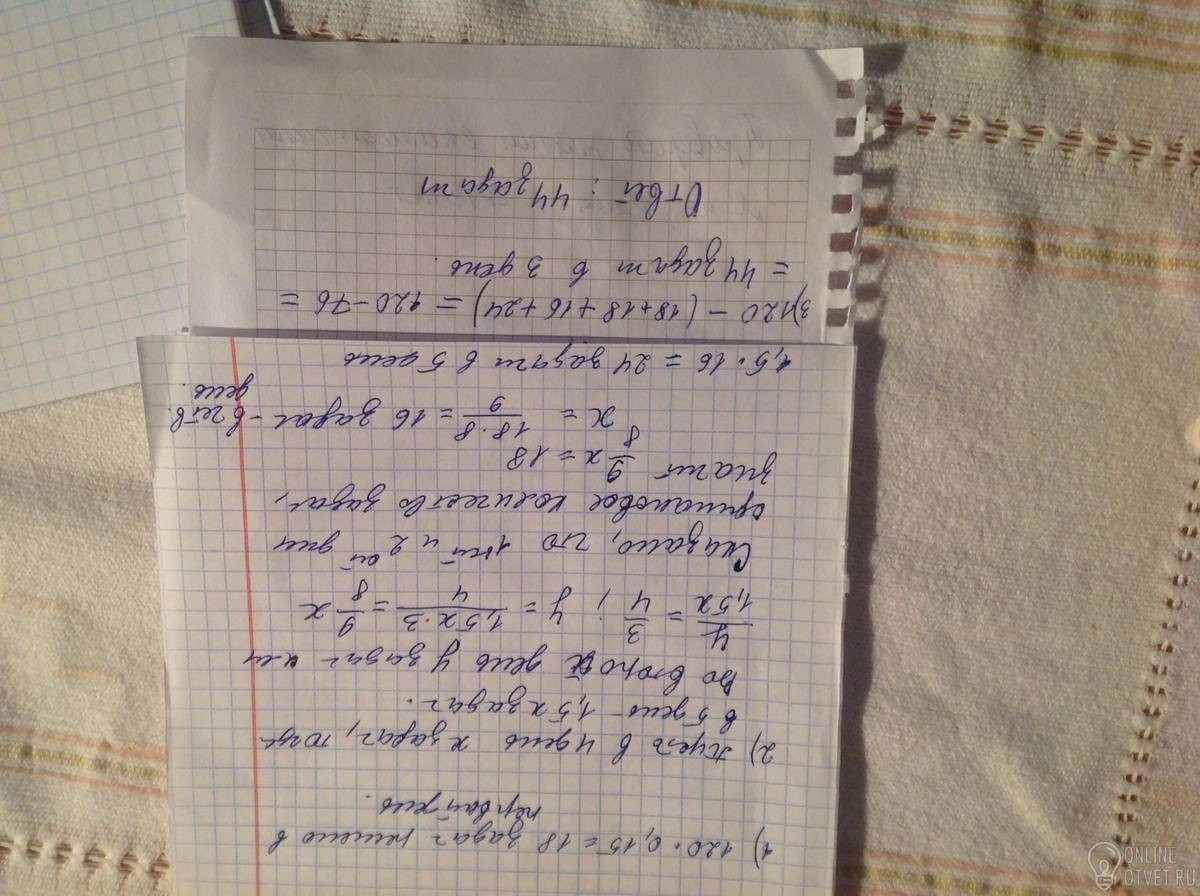 1) 120 · 0,15 = 18 задач решено в
первый день.
2) Пусть в 4 день x задач, тогда
в 5 день - 1,5x задач.
Во второй день y задач или
y/1,5x = 3/4 ; y = 1,5x·3/4 = 9/8 x
Сказано, что 1ый и 2ой дни
одинаковое количество задач,
значит 9/8 x = 18
x = 18·8/9 = 16 задач - в четв.
день.
1,5 · 16 = 24 задачи в 5 день
3) 120 - (18+18+16+24) = 120-76 =
= 44 задач в 3 день.
Ответ : 44 задач
ONLINE
OTVET.RU